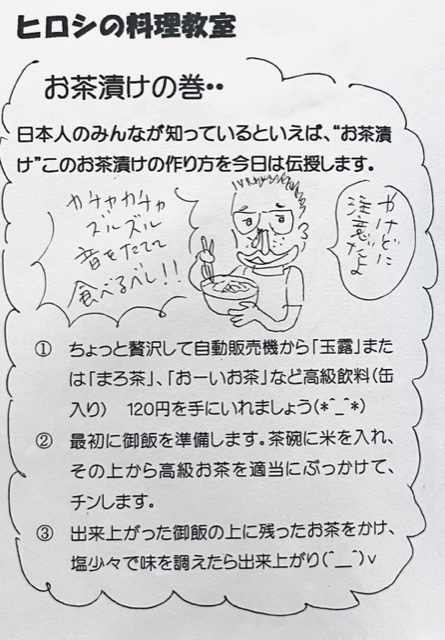 ヒロシの料理教室
お茶漬けの巻‥
日本人のみんなが知っているといえば、“お茶漬
け”このお茶漬けの作り方を今日は伝授します。
ガチャガチャ
ズルズル
音をたてて
食べるべし!!
やけどに
注意だよ
① ちょっと贅沢して自動販売機から「玉露」また
は「まろ茶」、「おーいお茶」など高級飲料(缶
入り) 120円を手にいれましょう(*^_^*)
② 最初に御飯を準備します。茶碗に米を入れ、
その上から高級お茶を適当にぶっかけて、
チンします。
③ 出来上がった御飯の上に残ったお茶をかけ、
塩少々で味を調えたら出来上がり(^__^)v